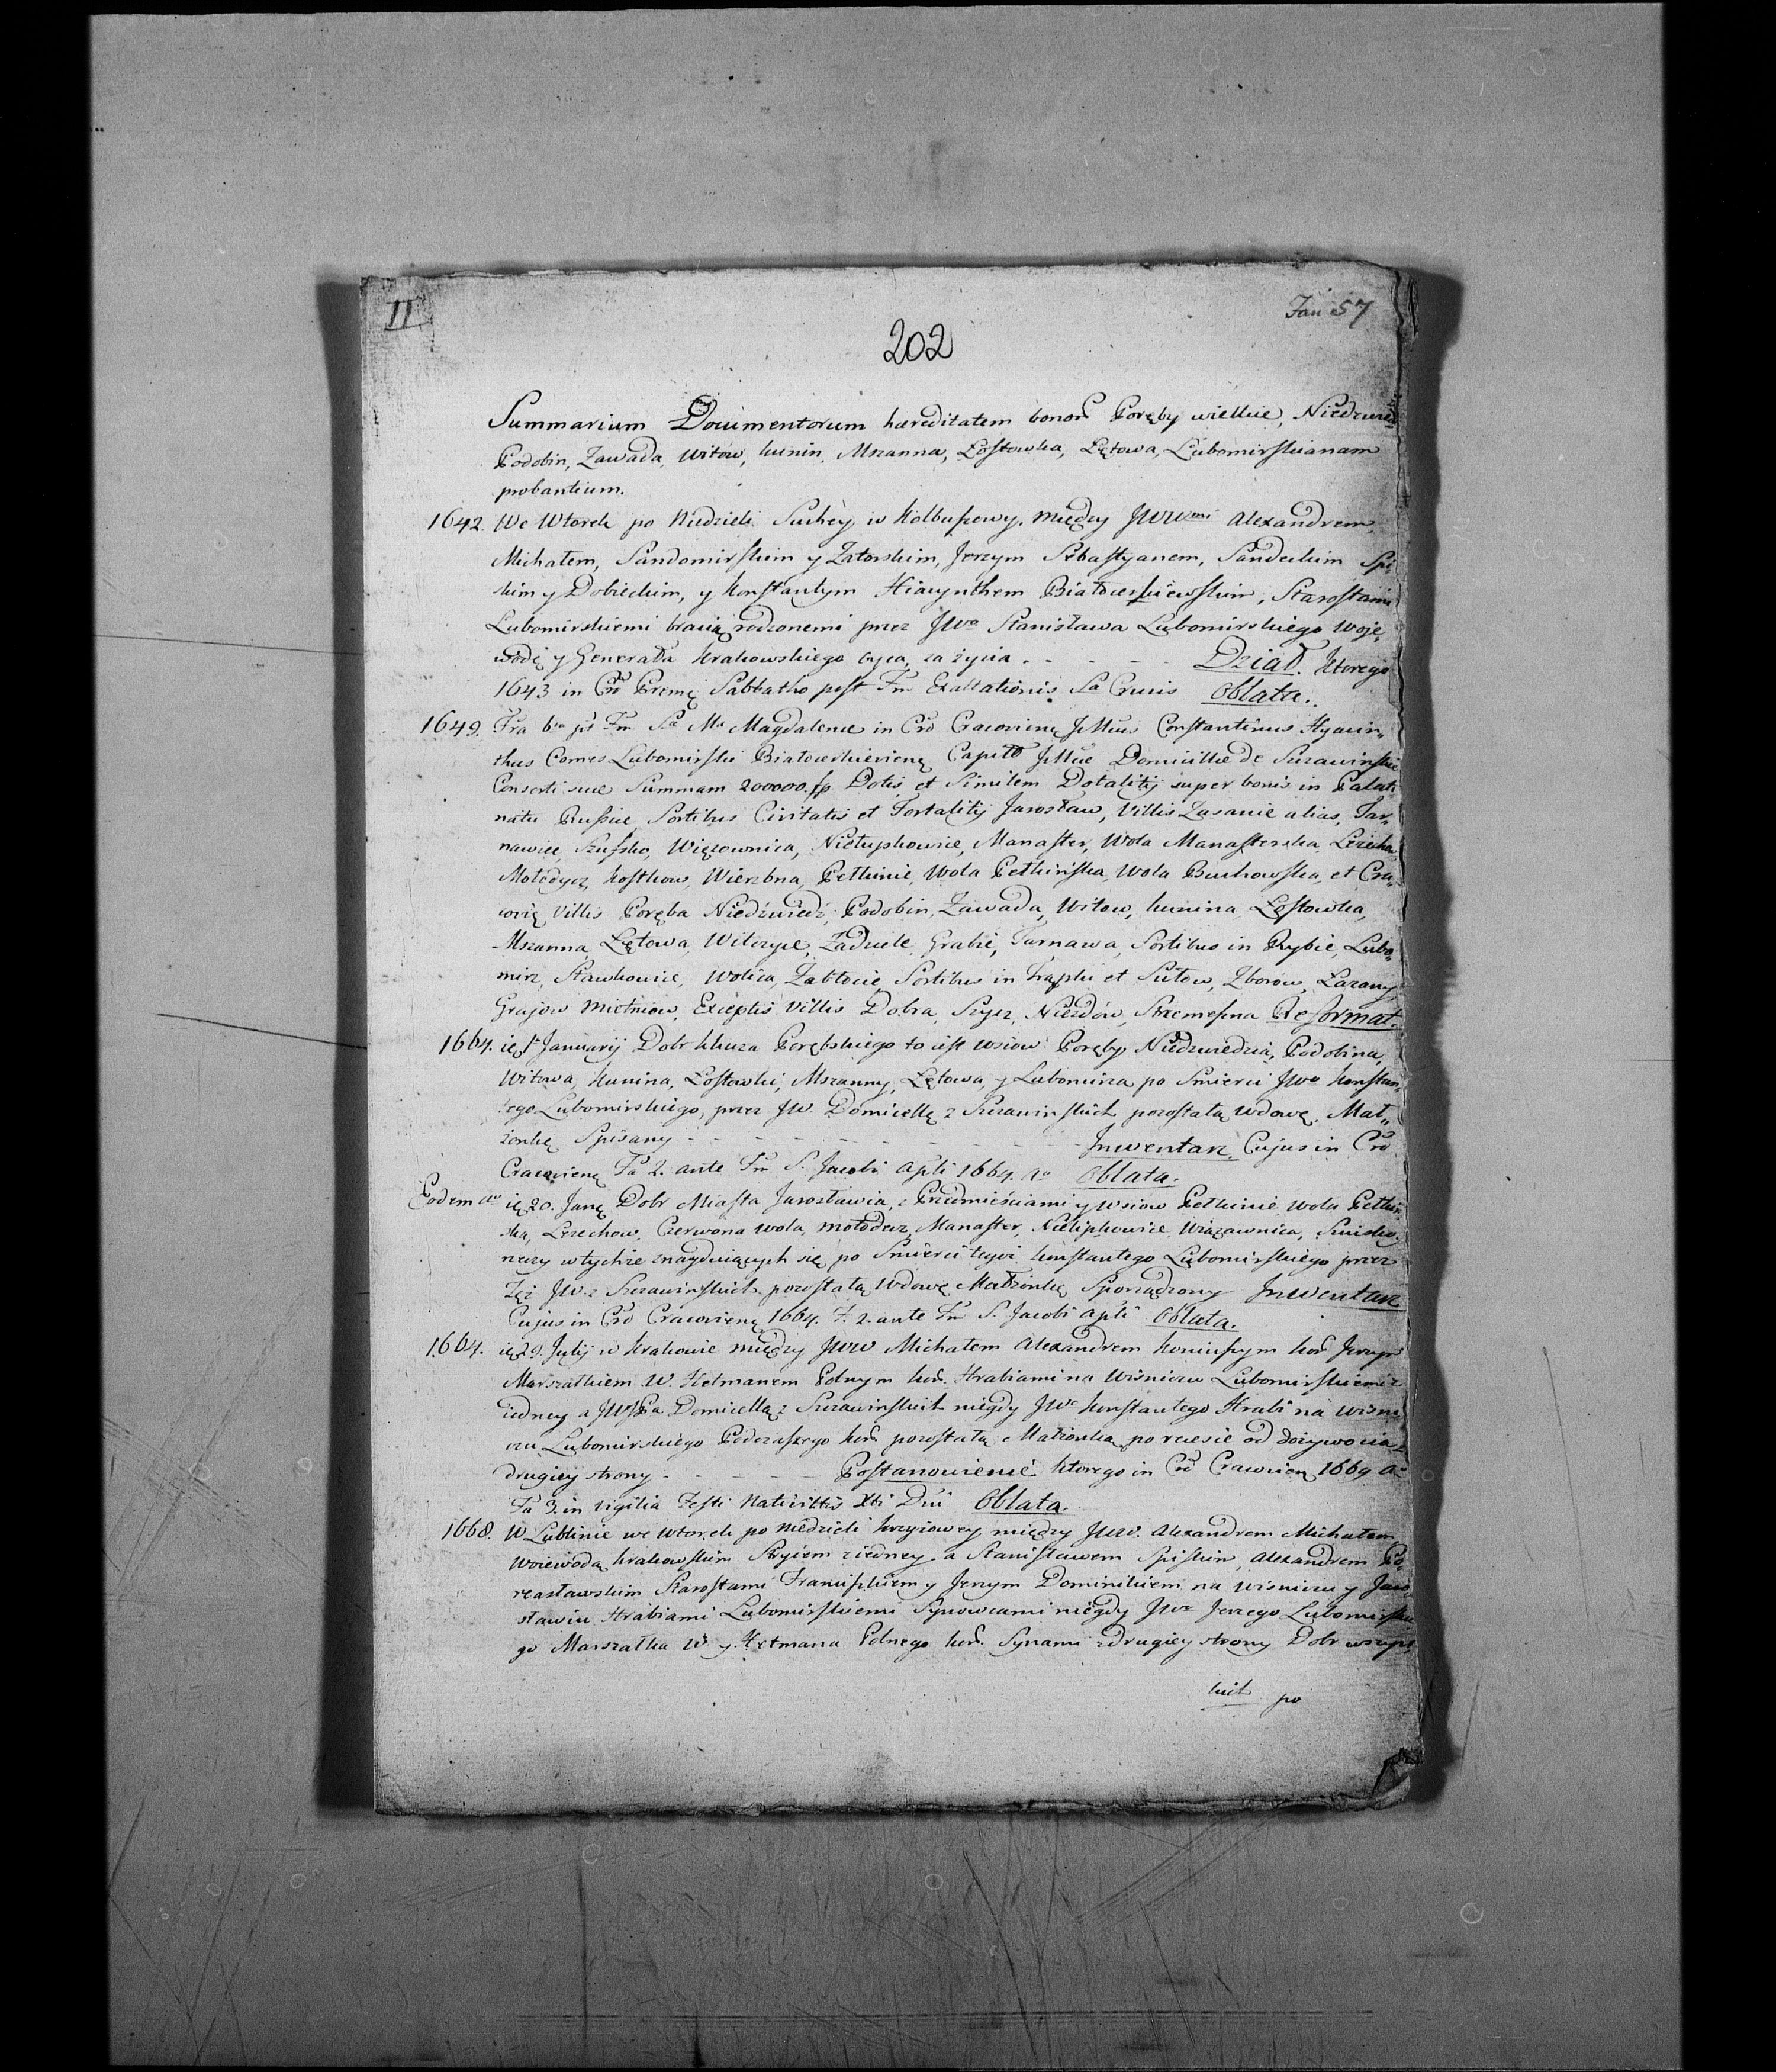 11
Fan 57
202
Summarium Documentorum hæreditatem bonor Poręby wielkie, Niedzwiedz
Podobin, Zawada, Witow, kunin, Mszanna, Łostowka, Łętowa, Lubomirskianam
probantium.
1642. We Wtorek po Niedzieli Suchey w Kolbuszowy, między JWWmi Alexandrem
Michałem, Sandomirskim y Zatorskim, Jerzym Sebastyanem, Sandeckim Spi
skim y Dobieckim, y Konstantym Hiacynthem Białocerkiewskim, Starostami
Lubomirskiemi bracią rodzonemi przez JWo Stanisława Lubomirskiego Woje,
wodę y Generała Krakowskiego oyca, za życia - - - - - Dział. Ktorego
1643 in Cro Premę Sabbatho post Fm Exaltationis Sa Crucis Oblata.
1649. Fra 6ta pt Fm Sa Ma Magdalenæ in Cro Cracovienę JMlus Constantinus Hyacin,,
thus Comes Lubomirski Białocerkievienę Capito JMlæ Domicillæ de Szczawinskie
Consorti suæ Summam 200000. fp Dotis et Similem Dotalitij super bonis in Palati
natu Russiæ Sortibus Civitatis et Fortalitij Jarosław, Villis Zasanie alias, Tar,,
nawiec, Szufsko, Więzownica, Nielupkowice, Manaster, Wola Manasterska, Leziecha
Mołodycz, kostkow, Wierzbna, Pełkinie, Wola Pełkińska, Wola Buchowska, et Cra,,
covię Villis Poręba Niedźwiedź, Podobin, Zawada, Witow, kunina, Łostowka,
Mszanna, Łętowa, Wilczyce, Zadziele, Grabie, Tarnawa, Sortibus in Rybie, Lubo,,
mirz, Sławkowice, Wolica, Zabłocie, Sortibus in et Sułow, Zborow, Łazany,
Grajow Mietniow, Exceptis Villis Dobra, Szyez, Niezdów, Strzemeszna Reformat.
1664. ię 1a Januarij Dobr klucza Porębskiego to iest wsiow Poręby, Niedzwiedzia, Podobina,
Witowa, kunina, Łostowki, Mszanny, Łętowa, y Lubomirza po Śmierci JWo konstan,,
tego Lubomirskiego, przez JW Domicellę z Szczawinskich pozostałą wdowę, Mał,,
żonkę Spisany - - - - - - - - - - Inwentarz, Cujus in Cro
Cracovienę Fa 2. ante Fm S. Jacobi Apti 1664. Ao Oblata.
Eodem Ao ię 20. Janę Dobr Miasta Jarosławia, z Przedmieściami y Wsiow Pełkinie Wola Pełkiń
ska, Lezechow, Czerwona wola, Mołodycz, Manaster, Nielipkowice, Wiązawnica,
rzeczy wtychże znayduiących się po Śmierci tegoż konstantego Lubomirskiego przez
Też JW. z Szczawinskich pozostałą Wdowę Małżonkę Sporządzony Inwentarz
Cujus in Cro Cracovienę 1664. F. 2. ante Fm S. Jacobi Apti Oblata.
1664. ię 29. Julij w krakowie między JWW Michałem Alexandrem koniuszym kor. Jerzym
Marszałkiem W. Hetmanem Polnym kor. Hrabiami na Wisniczu Lubomirskiemi z
iedney a JWska Domicellą z Szczawinskich niegdy JWo konstantego Hrabi na Wisni
czu Lubomirskiego Podczaszego kor. pozostałą Małżonką porzesie od dożywocia z
drugiey strony - - - - - - Postanowienie ktorego in Cro Cracovien 1669 Ao
Fa 3. in vigilia Festi Nativittis Xti Dni Oblata.
1668. W Lublinie we Wtorek po niedzieli krzyżowey między JWW. Alexandrem Michałem
Woiewodą krakowskim Stryiem z iedney a Stanisławem Spiskim, Alexandrem Pe
reasławskim Starostami Franciszkiem y Jerzym Dominikiem na Wisniczu y Jaro
sławiu Hrabiami Lubomirskiemi Synowcami niegdy JWo Jerzego Lubomirskie
go Marszałka W y Hetmana Polnego kor. Synami z drugiey strony Dobr wszyst
kich po